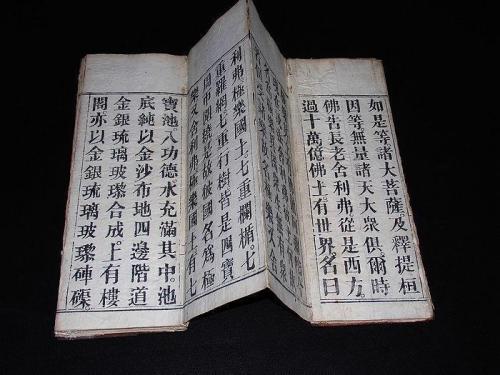 如是等諸大菩薩。及釋提桓
因等無量諸天大眾俱。爾時
佛告長老舍利弗。從是西方。
過十萬億佛土。有世界名曰
利弗。極樂國土。七重欄楯。七
重羅網。七重行樹。皆是四寶
周帀圍繞。是故彼國名爲極
樂。又舍利弗。極樂國土。有七
寶池。八功德水。充滿其中。池
底純以金沙布地。四邊階道。
金銀琉璃玻瓈合成。上有樓
閣。亦以金銀琉璃玻瓈硨磲。